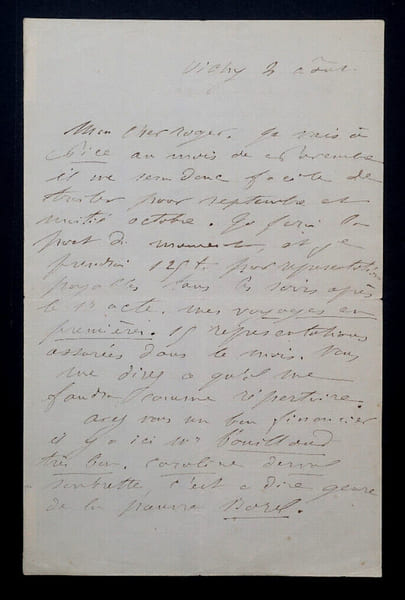 Vichy 2 août
Mon cher Roger. Je vais à
Nice au mois de Novembre
il me sera donc facile de
traiter pour septembre et
moitié octobre. Je ferai le
prix du moment, et je
prendrai 125 f. par représentation
payables tous les soirs après
le 1er acte. mes voyages en
premières. 15 représentations
assurées dans le mois. Vous
me direz ce qu'il me
faudra comme répertoire.
avez vous un bon financier
il y a ici Mr Bouilloud
très bon. Caroline Derval
soubrette, c'est à dire genre
de la pauvre Borel.